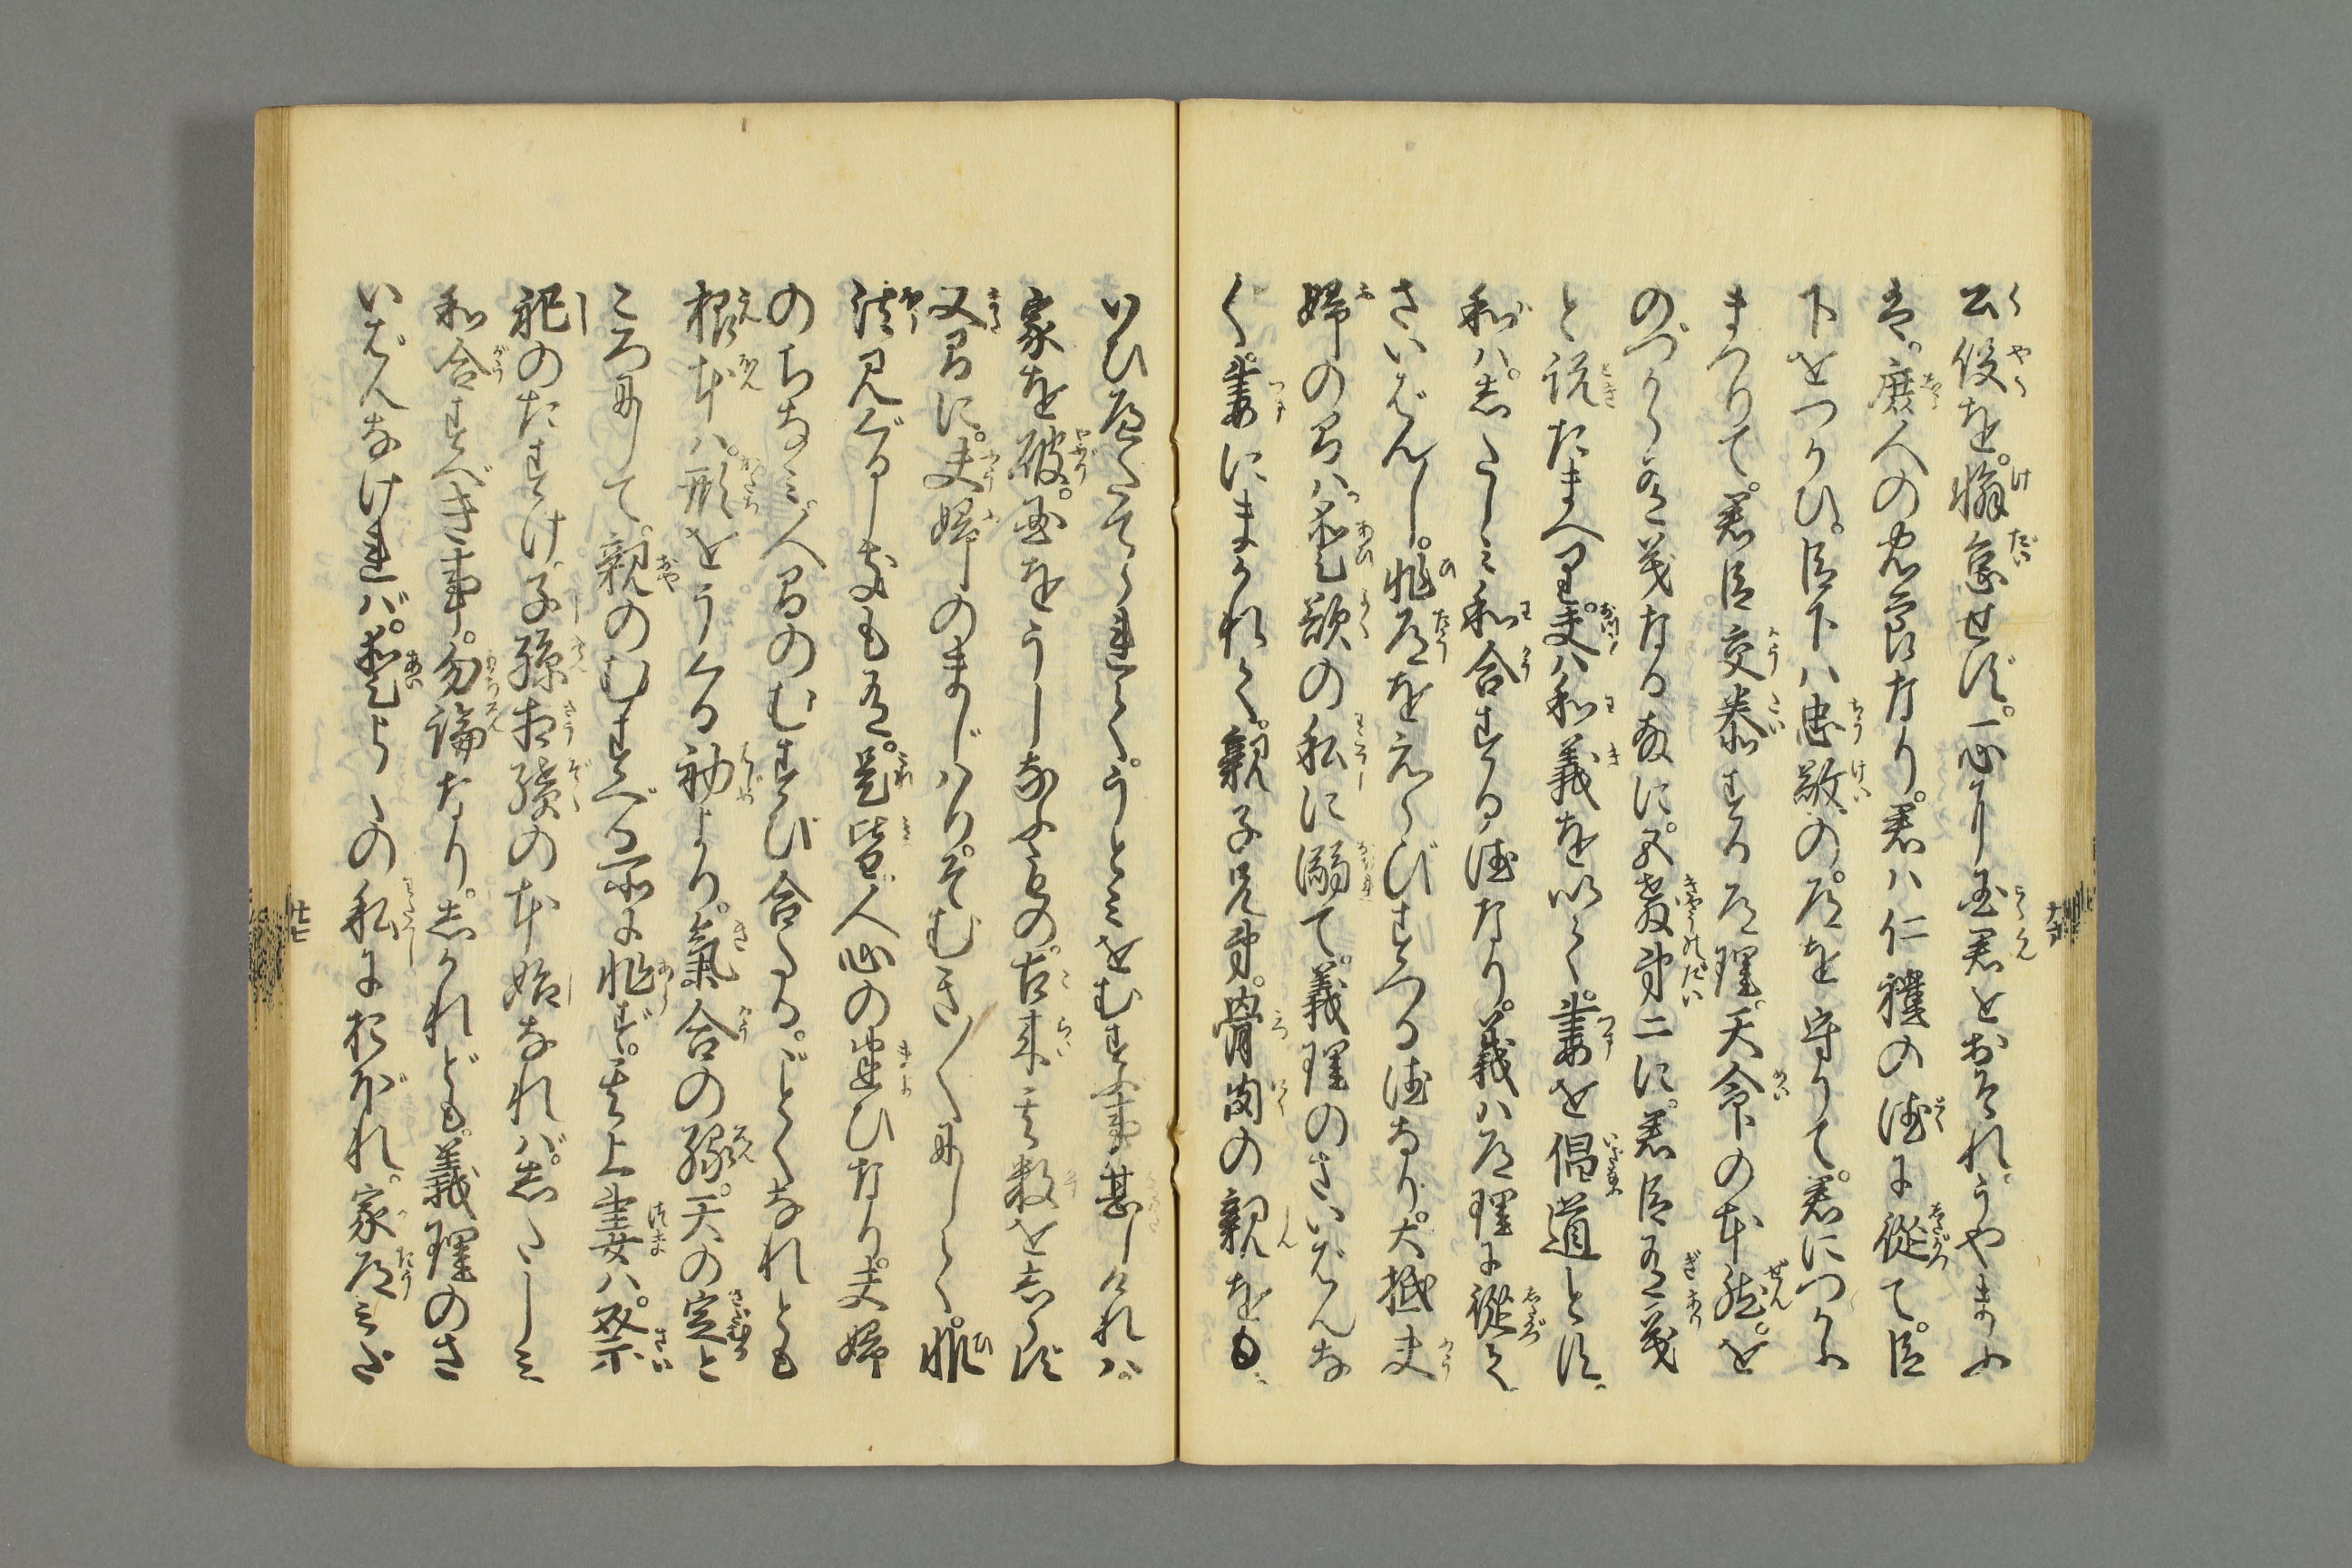 公役を。懈怠せず。一心に国君をおそれ。うやまふ
は。庶人の忠節なり。君ハ仁禮の徳に従て。臣
下をつかひ。臣下ハ忠敬の。道を守りて。君につかふ
まつりて。君臣交泰する道理。天命の本然。を
のづから有義なる故に。五教第二に。君臣有義
と説たまへり。夫ハ和義を以て。妻を倡道とす。
和ハ。したしミ和合する徳なり。義ハ道理に従て
さいばんし。非道をえらびすつる徳なり。大抵夫
婦の間ハ。愛欲の私に溺て。義理のさいばんな
く。妻にまかれて。親子兄弟。骨肉の親をも。
いひ遠てられて。うとミをむすぶ事甚しければ。
家を破。国をうしなふもの。古来其数をしらず
又間に。夫婦のまじハり。そむき〳〵にして。非
法見ぐるしきも有。是皆人心の迷ひなり。夫婦
のちなミ。人間のむすび合たる。ごとくなれとも
根本ハ。形をうくる初より。氣合の縁。天の定と
ころにして。親のむすべる所に非ず。其上妻ハ。祭
祀のたすけ。子孫相続の本始なれバ。したしミ
和合すべき事。勿論なり。しかれども。義理のさ
いばんなければ。愛よくの私におぼれ。家道ミだ
廿七